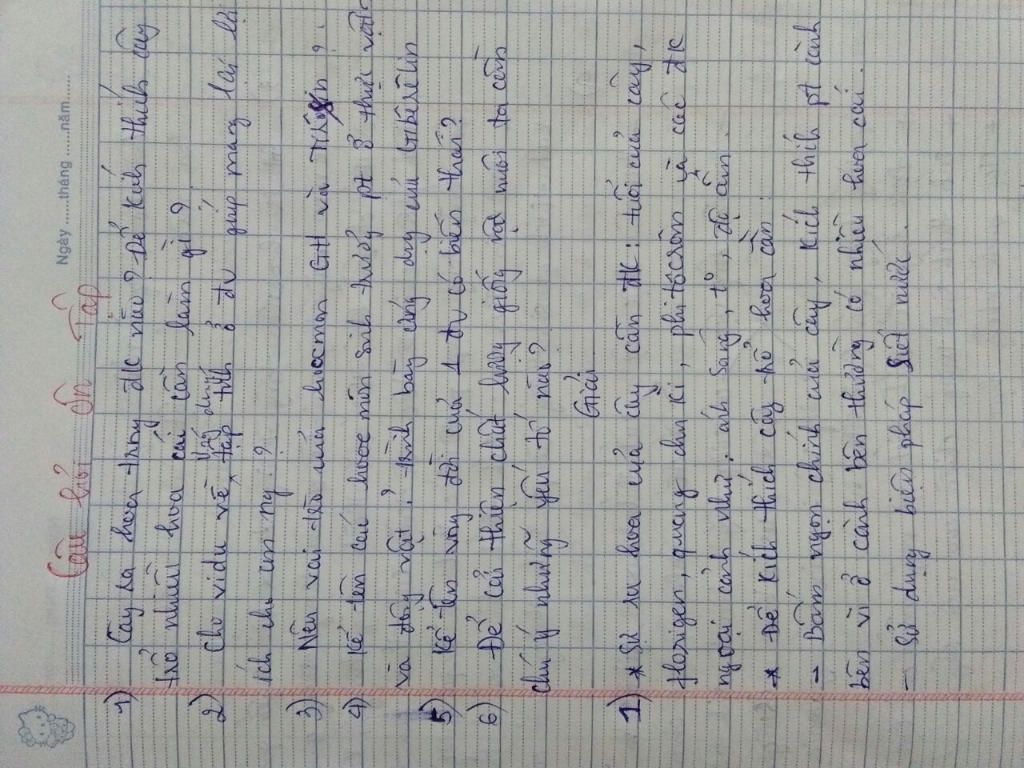 Ngày ...... tháng ...... năm ......
Câu hỏi ôn tập
1) Cây ra hoa trong ĐK nào? Để kích thích cây
trổ nhiều hoa cái cần làm gì?
2) Cho ví dụ về tập tính ở đv giúp mang lại lợi
ích cho con ng?
3) Nêu vai trò của hoocmon GH và Tirôxin?
4) Kể tên các hoocmôn sinh trưởng pt ở thực vật
và động vật? trình bày ứng dụng của Gibêrelin
5) Kể tên vòng đời của 1 đv có biến thái?
6) Để cải thiện chất lượng giống vật nuôi ta cần
chú ý những yếu tố nào?
Giải
1) * Sự ra hoa của cây cần ĐK: tuổi của cây,
florigen, quang chu kì, phitôcrôm và các ĐK
ngoại cảnh như: ánh sáng, t°, độ ẩm.
* Để kích thích cây trổ hoa cần:
- Bấm ngọn chính của cây, kích thích pt cành
bên vì ở cành bên thường có nhiều hoa cái.
- Sử dụng biện pháp siết nước.